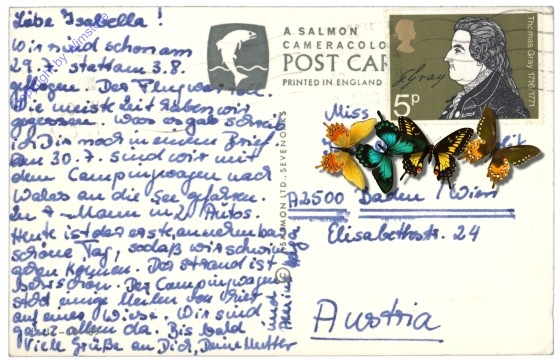 Liebe Isabella!
Wir sind schon am
29.7. statt am 3.8.
geflogen. Der Flug war
Die meiste Zeit haben wir
gegessen. Was es gab schreib
ich Dir noch in einem Brief
am 30.7. sind wir mit
dem Campingwagen nach
Wales an die See gefahren.
In 7-Mann in 2 Autos.
Heute ist der erste, annehmbar
schöne Tag, sodaß wir schwim
gehen können. Der Strand ist
herrlich. Der Campingwagen
steht einige Meilen von hier
auf einer Wiese. Wir sind
ganz allein da. Bis bald
Viele Grüße an Dich, Deine Mutter
und
A SALMON
CAMERACOLO
POST CAR
PRINTED IN ENGLAND
© J. SALMON LTD., SEVENOAKS
Thomas Gray 1716/1771
T Gray
5p
Miss
A2500 Baden / Wien
Elisabethstr. 24
Austria